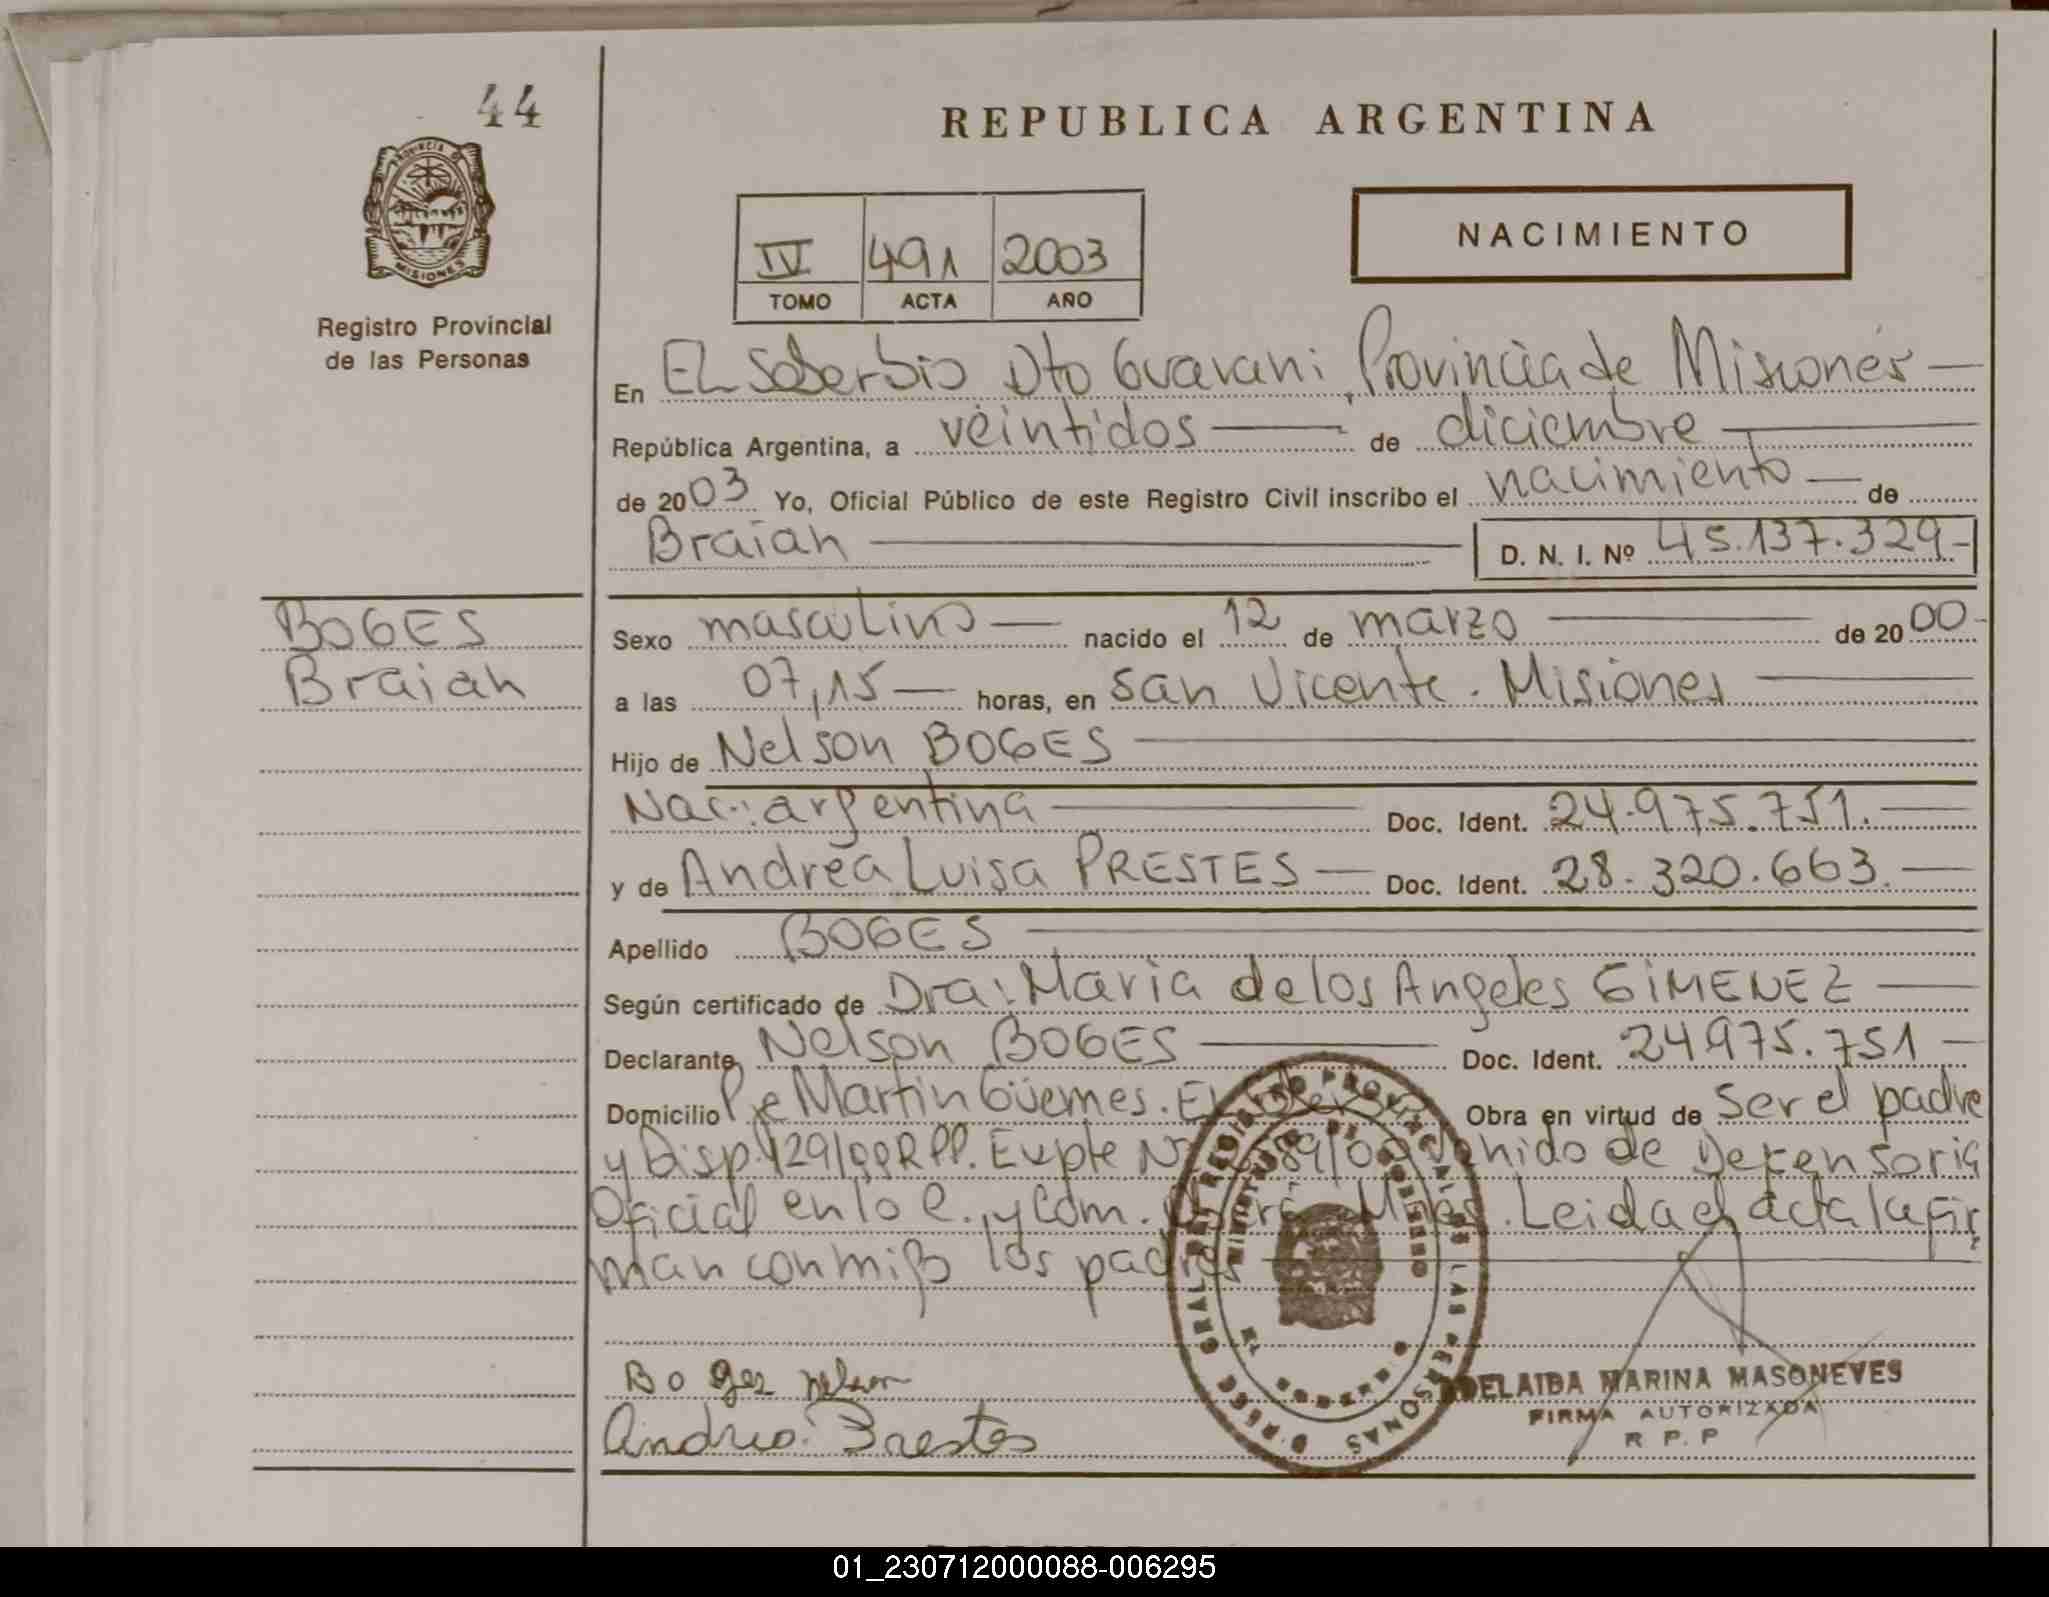 44
REPUBLICA ARGENTINA
PROVINCIA DE
MISIONES
Registro Provincial
de las Personas
NACIMIENTO
IV 491 2003
TOMO ACTA AÑO
En El Soberbio Dto Guarani, Provincia de Misiones
República Argentina, a veintidos de diciembre
de 2003 Yo, Oficial Público de este Registro Civil inscribo el nacimiento de
Braian D. N. I. Nº 45.137.329
BOGES
Braian
Sexo masculino nacido el 12 de marzo de 2000
a las 07,15 horas, en San Vicente. Misiones
Hijo de Nelson BOGES
Nac.: argentina Doc. Ident. 24.975.751.
y de Andrea Luisa PRESTES Doc. Ident. 28.320.663.
Apellido BOGES
Según certificado de Dra: Maria de los Angeles GiMENEZ
Declarante Nelson BOGES Doc. Ident. 24975.751
Domicilio Pje Martin Güemes. El Obra en virtud de Ser el padre
y Disp. 129/99 RPP. Expte de Defensoria
Oficial en lo C. y Com. Leida el acta la fir
man conmigo los padres
Boges Nelson
Andrea Prestes
ADELAIDA MARINA MASONEVES
FIRMA AUTORIZADA
R P. P
01_230712000088-006295